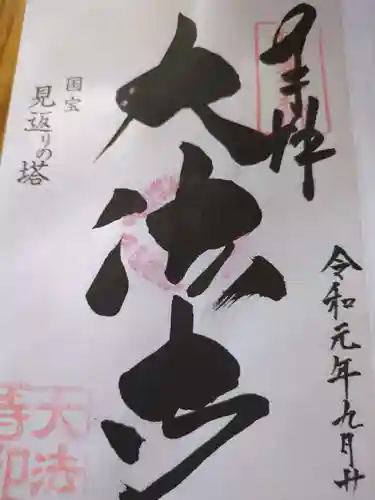 奉拝
令和元年九月廿
大法寺
国宝
見返りの塔
大法
寺印